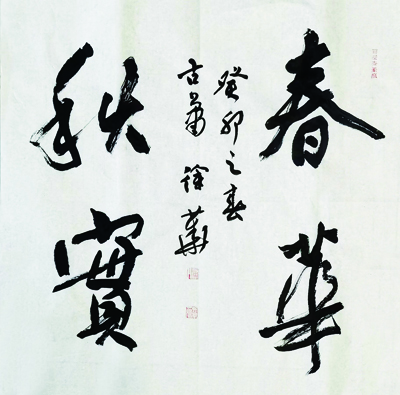 春華
秋實
癸卯之春
古蕭 徐